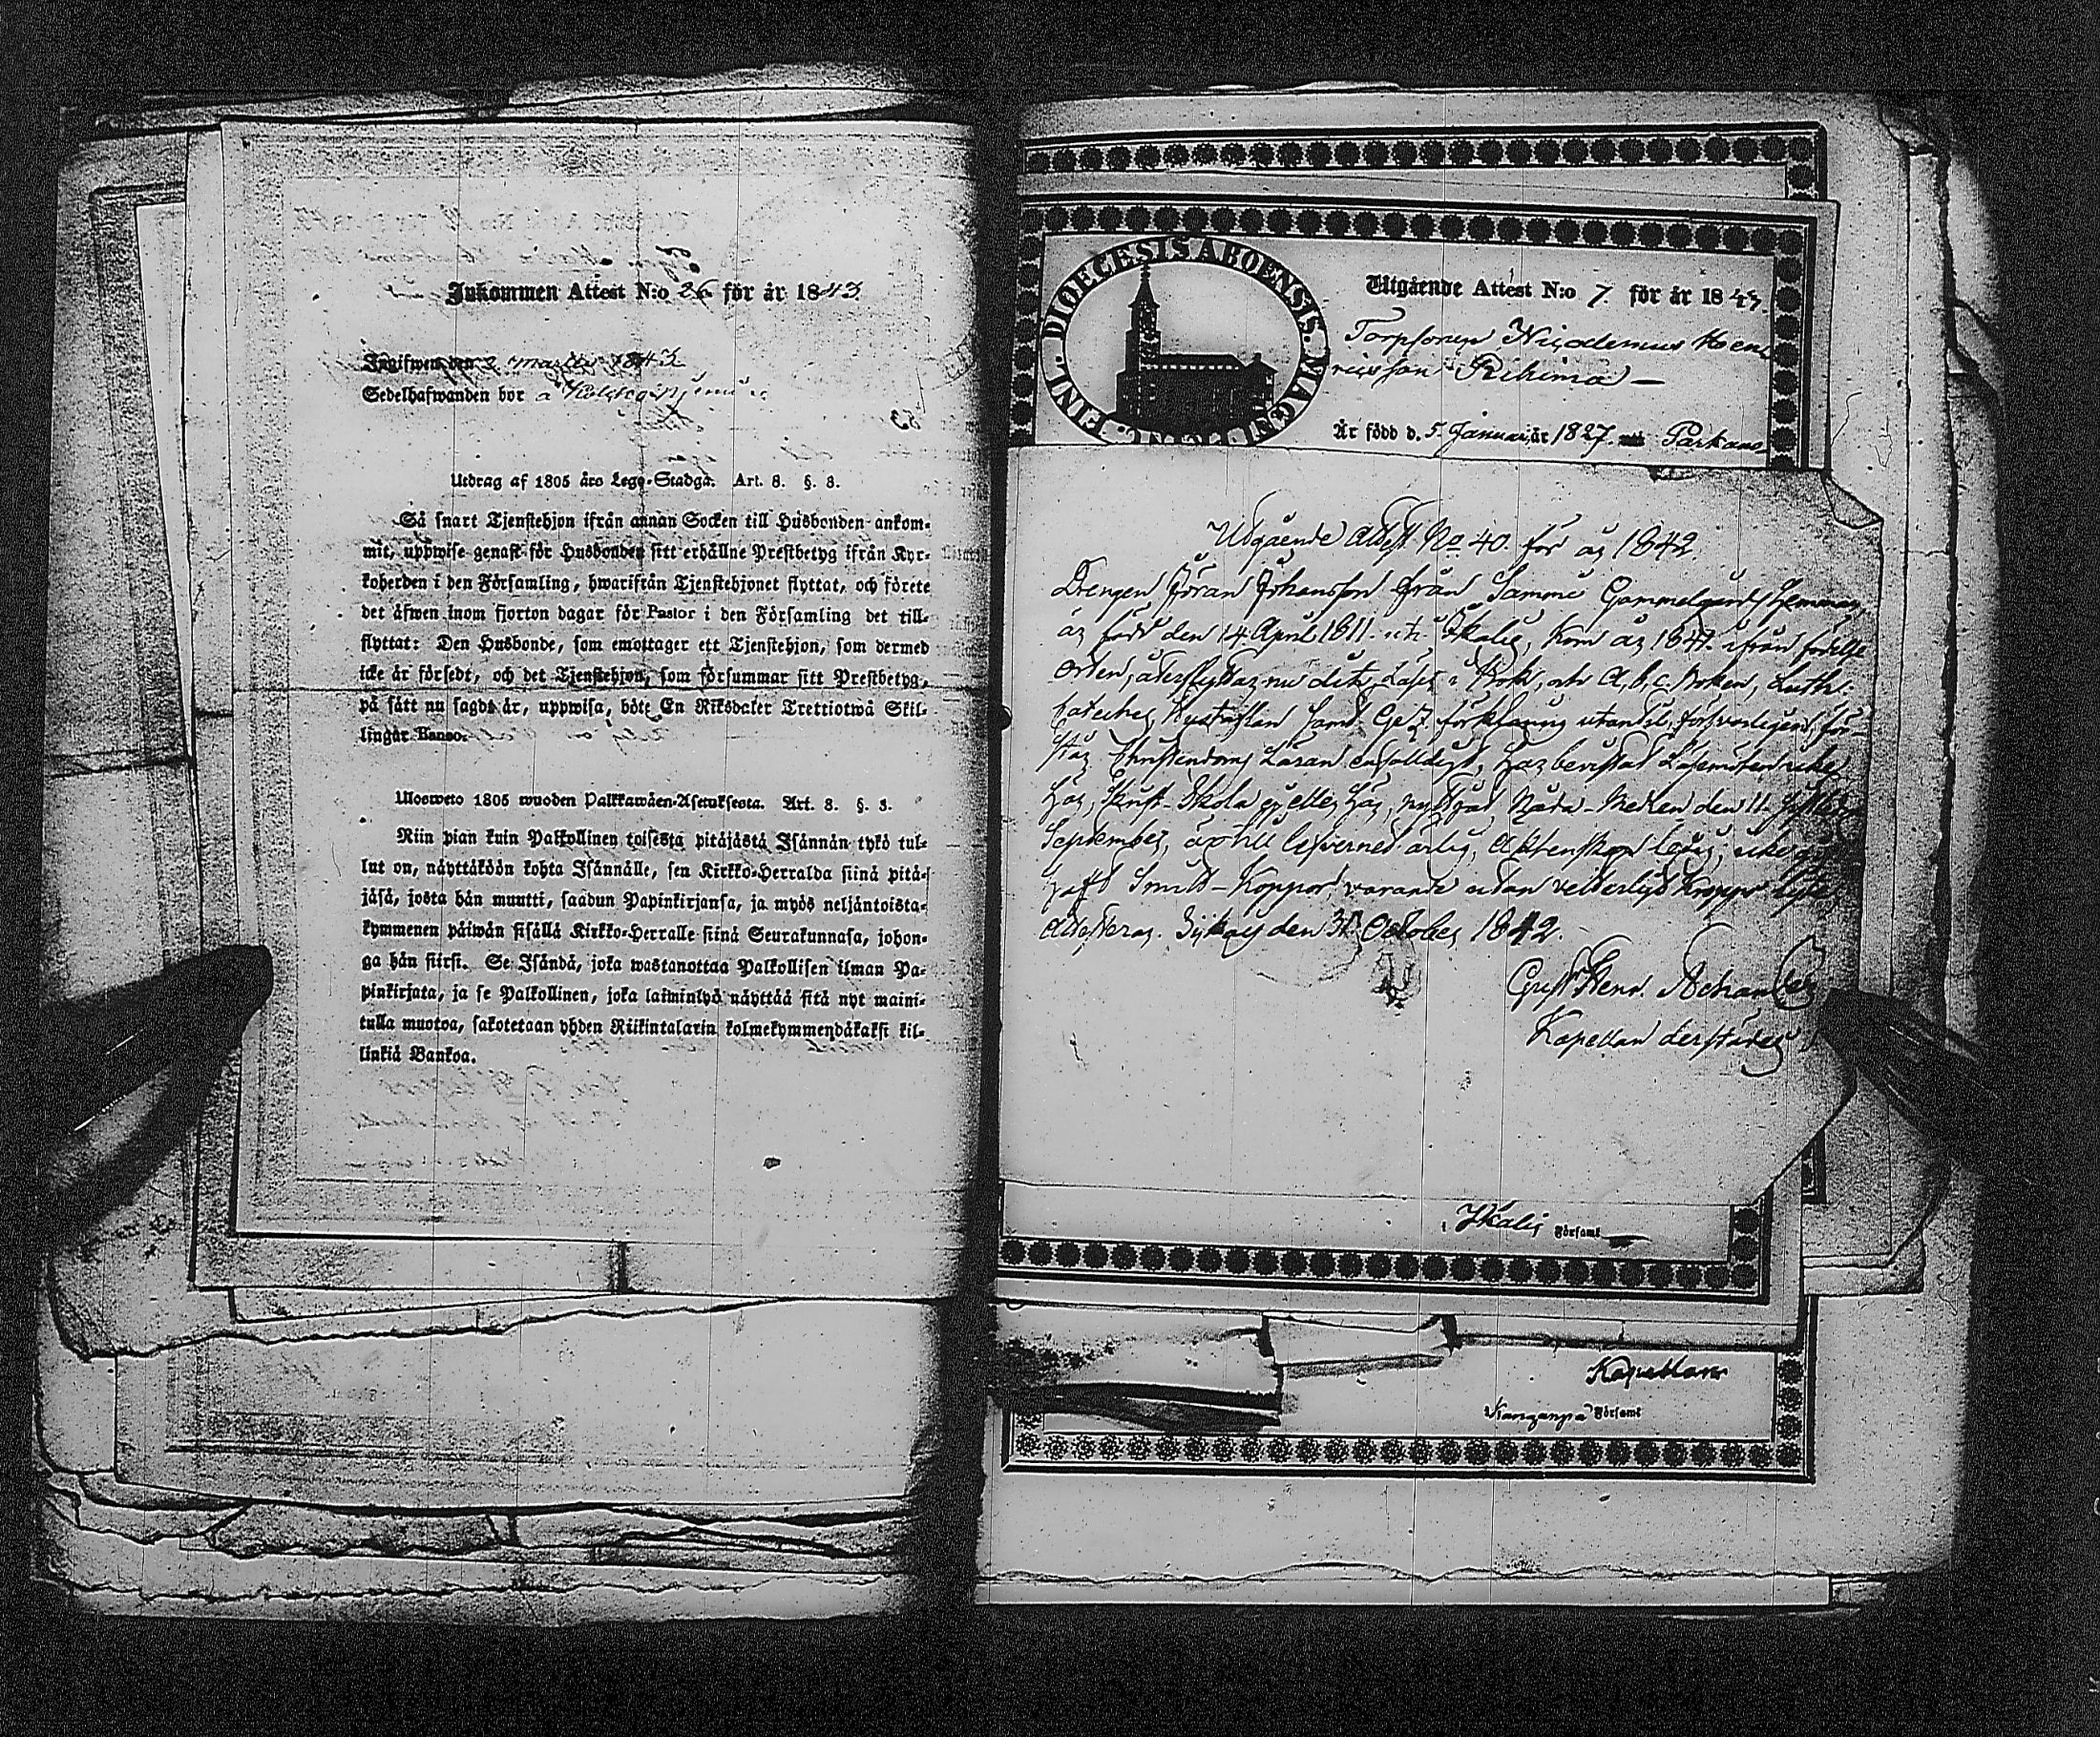 Inkommen Attest N:o 26 för år 1843.
Ingifwen den 2 1843
Sedelhafwanden bor å
Utdrag af 1805 års Lego-Stadga. Art. 8. §. 3.
Så snart Tjenstehjon ifrån annan Socken till Husbonden ankom-
mit, uppwise genast för Husbonden sitt erhållne Prestbetyg ifrån Kyr-
koherden i den Församling, hwarifrån Tjenstehjonet flyttat, och förete
det äfwen inom fjorton dagar för Pastor i den Församling det till-
flyttat: Den Husbonde, som emottager ett Tjenstehjon, som dermed
icke är försedt, och det Tjenstehjon, som försummar sitt Prestbetyg,
på sätt nu sagdt är, uppwisa, böte En Riksdaler Trettiotwå Skil-
lingar Banco.
Ulosweto 1805 wuoden Palkkawäen-Asetuksesta. Art. 8. §. 3.
Niin pian kuin Palkollinen toisesta pitäjästä Isännän tykö tul-
lut on, näyttäköön kohta Isännälle, sen Kirkko-Herralda siinä pitä-
jäsä, josta hän muutti, saadun Papinkirjansa, ja myös neljäntoista-
kymmenen päiwän sisällä Kirkko-Herralle siinä Seurakunnasa, johon-
ga hän siirsi. Se Isändä, joka wastanottaa Palkollisen ilman Pa-
pinkirjata, ja se Palkollinen, joka laiminlyö näyttää sitä nyt maini-
tulla muotoa, sakotetaan yhden Riikintalarin kolmekymmendäkaksi kil-
linkiä Bankoa.
FINL. DIOECESIS ABOENSIS. MAGNI
Utgående Attest N:o 7 för år 1843.
Torpsonen Nicodemus Hen
ricsson Riihimä —
Är född d. 5 Januari, år 1827. Parkano
Utgående Attest No 40. för år 1842.
Drengen Göran Johansson från Sammi Gammelgårds Hemman,
är född den 14 April 1811. uti Ikalis, kom år 1841. ifrån födelse
orten, återflyttar nu dit, Läser i Bok, utr A, b, c. Boken, Luth:
cateches, Hustaflan samt förklaring utantil, försvarligen, för-
står Christendoms Läran enfalldigt, har bevistat Läsemöten, icke
har, Skrift-Skola ej eller har, nyttjad Nåde-Medlen den 11
September, är till lefverned ärlig, Äktenskap ledig, icke
haft Smitt-Koppor, varande utan vetterligt Kropps lyte,
attesteras. den 31 October 1842.
Gust. Henr.
Kapellan derstädes
i Ikalis Församl
Kapellan
i Kanganpä Församl